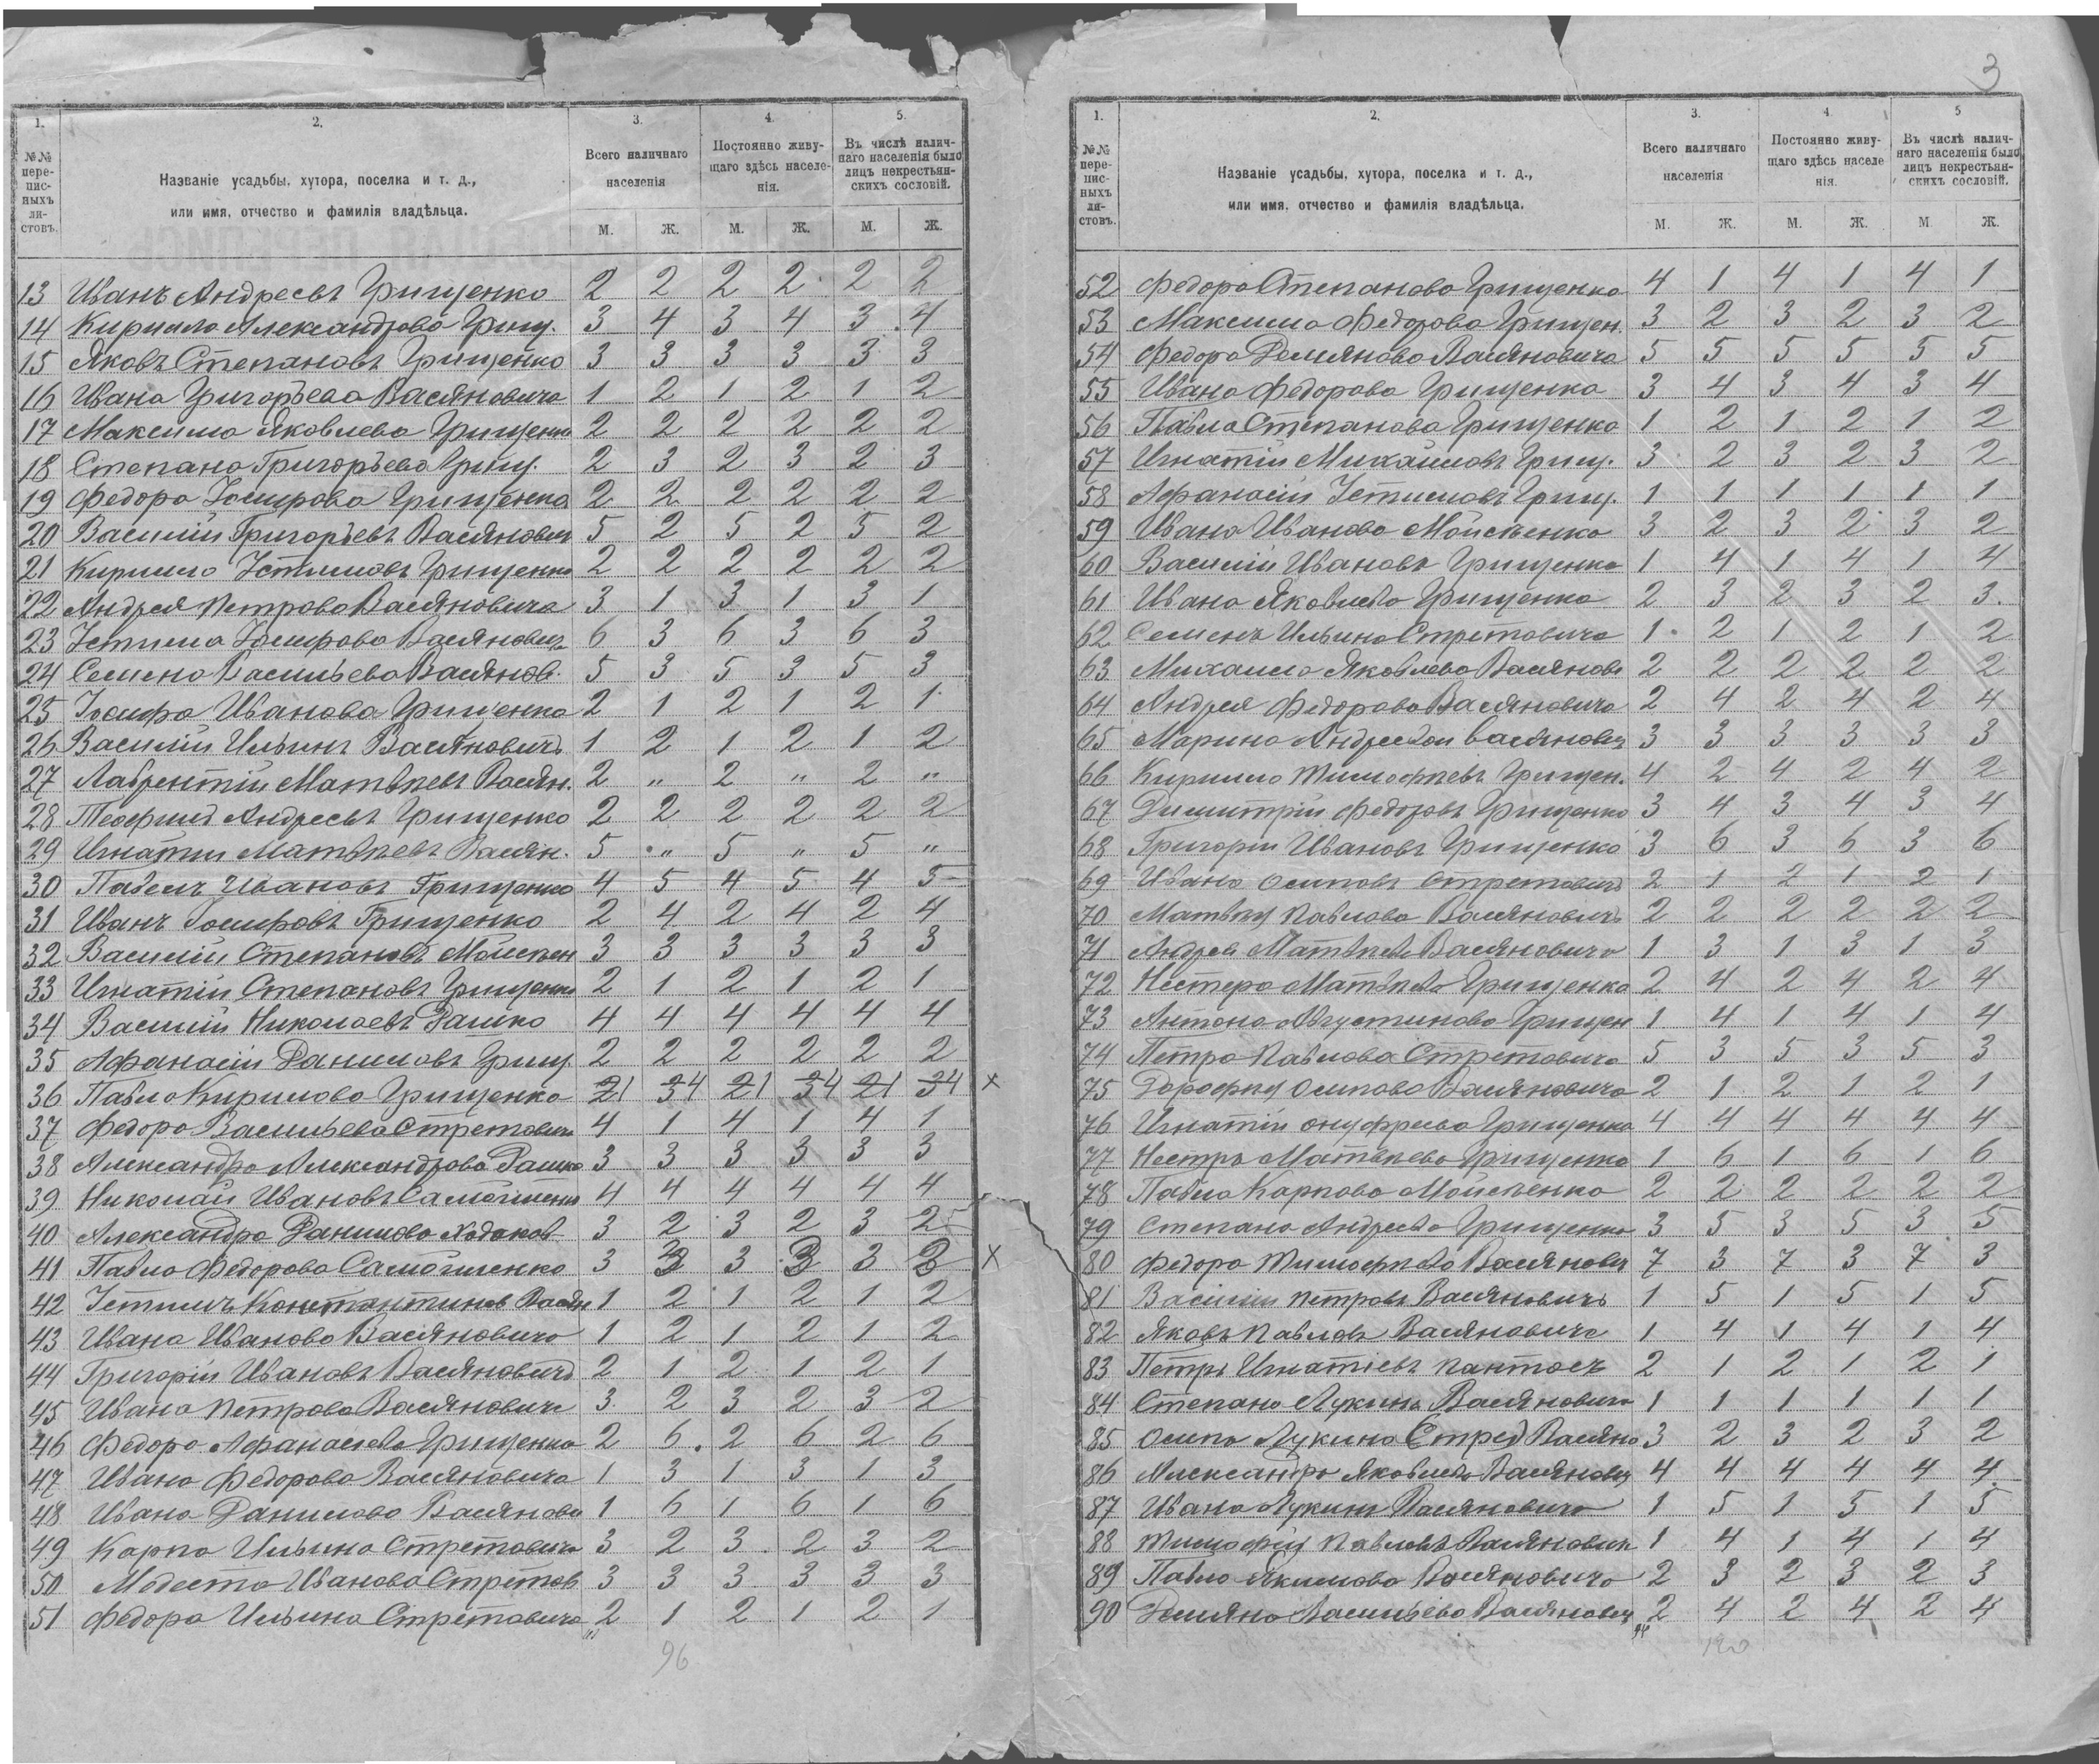 3
1. 2. 3. 4. 5.
№№ переписныхъ листовъ. Названіе усадьбы, хутора, поселка и т. д., или имя, отчество и фамилія владѣльца. Всего наличнаго населенія Постоянно живущаго здѣсь населенія. Въ числѣ наличнаго населенія было лицъ некрестьянскихъ сословій.
М. Ж. М. Ж. М. Ж.
13 Иванъ Андреевъ Грищенко 2 2 2 2 2 2
14 Кирилло Александрово Грищ. 3 4 3 4 3 4
15 Яковъ Степановъ Грищенко 3 3 3 3 3 3
16 Ивана Григорьева Васяновича 1 2 1 2 1 2
17 Максима Яковлева Грищенко 2 2 2 2 2 2
18 Степана Григорьева Грищ. 2 3 2 3 2 3
19 Федора Іосифова Грищенка 2 2 2 2 2 2
20 Василій Григорьевъ Васянович 5 2 5 2 5 2
21 Кирилло Устимовъ Грищенко 2 2 2 2 2 2
22 Андрея Петрова Васяновича 3 1 3 1 3 1
23 Устима Іосифова Васянович 6 3 6 3 6 3
24 Семена Васильева Васянов. 5 3 5 3 5 3
25 Іосифа Иванова Грищенко 2 1 2 1 2 1
26 Василій Ильинъ Васяновичъ 1 2 1 2 1 2
27 Лаврентій Матвѣевъ Васян. 2 " 2 " 2 "
28 Теофилъ Андреевъ Грищенко 2 2 2 2 2 2
29 Игнатій Матвѣевъ Васян. 5 " 5 " 5 "
30 Павелъ Ивановъ Грищенко 4 5 4 5 4 5
31 Иванъ Іосифовъ Грищенко 2 4 2 4 2 4
32 Василій Степановъ Мойсѣен 3 3 3 3 3 3
33 Игнатій Степановъ Грищенко 2 1 2 1 2 1
34 Василій Николаевъ Рашко 4 4 4 4 4 4
35 Афанасій Даниловъ Грищ. 2 2 2 2 2 2
36 Павла Кирилова Грищенко 21 34 21 34 21 34 х
37 Федора Васильева Стретович 4 1 4 1 4 1
38 Александра Александрова Рашко 3 3 3 3 3 3
39 Николай Ивановъ Самойленко 4 4 4 4 4 4
40 Александра Данилова Ходаков 3 2 3 2 3 2
41 Павла Федорова Самойленко 3 3 3 3 3 3 х
42 Устимъ Константинов Васян 1 2 1 2 1 2
43 Ивана Иванова Васяновича 1 2 1 2 1 2
44 Григорій Ивановъ Васяновичъ 2 1 2 1 2 1
45 Ивана Петрова Васянович 3 2 3 2 3 2
46 Федора Афанасьева Грищенко 2 6 2 6 2 6
47 Ивана Федорова Васяновича 1 3 1 3 1 3
48 Ивана Данилова Васянович 1 6 1 6 1 6
49 Карпа Ильина Стретовича 3 2 3 2 3 2
50 Модеста Иванова Стретов 3 3 3 3 3 3
51 Федора Ильина Стретовича 2 1 2 1 2 1
96
1. 2. 3. 4. 5
№№ переписныхъ листовъ. Названіе усадьбы, хутора, поселка и т. д., или имя, отчество и фамилія владѣльца. Всего наличнаго населенія Постоянно живущаго здѣсь населе нія. Въ числѣ наличнаго населенія было лицъ некрестьянскихъ сословій.
М. Ж. М. Ж. М Ж.
52 Федора Степанова Грищенко 4 1 4 1 4 1
53 Максима Федорова Грищен. 3 2 3 2 3 2
54 Федора Демянова Васяновича 5 5 5 5 5 5
55 Ивана Федорова Грищенка 3 4 3 4 3 4
56 Павла Степанова Грищенко 1 2 1 2 1 2
57 Игнатій Михайловъ Грищ. 3 2 3 2 3 2
58 Афанасій Устимовъ Грищ. 1 1 1 1 1 1
59 Ивана Иванова Мойсѣенко 3 2 3 2 3 2
60 Василій Ивановъ Грищенко 1 4 1 4 1 4
61 Ивана Яковлева Грищенко 2 3 2 3 2 3
62 Семенъ Ильина Стретовича 1 2 1 2 1 2
63 Михаила Яковлева Васянов 2 2 2 2 2 2
64 Андрея Федорова Васяновича 2 4 2 4 2 4
65 Марина Андреевой Васянович 3 3 3 3 3 3
66 Кирилло Тимофѣевъ Грищен. 4 2 4 2 4 2
67 Димитрій Федоровъ Грищенко 3 4 3 4 3 4
68 Григорій Ивановъ Грищенко 3 6 3 6 3 6
69 Ивана Осиповъ Стретовичъ 2 1 2 1 2 1
70 Матвѣй Павлова Васяновичъ 2 2 2 2 2 2
71 Андрей Матвѣева Васяновича 1 3 1 3 1 3
72 Нестера Матвѣева Грищенка 2 4 2 4 2 4
73 Антона Августинова Грищен 1 4 1 4 1 4
74 Петра Павлова Стретовича 5 3 5 3 5 3
75 Дорофѣй Осипова Васяновича 2 1 2 1 2 1
76 Игнатій Онуфрева Грищенко 4 4 4 4 4 4
77 Нестръ Матвѣева Грищенко 1 6 1 6 1 6
78 Павла Карпова Мойсѣенко 2 2 2 2 2 2
79 Степана Андреева Грищенко 3 5 3 5 3 5
80 Федора Тимофѣева Васянович 7 3 7 3 7 3
81 Василій Петровъ Васяновичъ 1 5 1 5 1 5
82 Яковъ Павловъ Васяновича 1 4 1 4 1 4
83 Петръ Игнатіевъ Пантось 2 1 2 1 2 1
84 Степана Лукинъ Васяновича 1 1 1 1 1 1
85 Осипа Лукина Стред Васяно 3 2 3 2 3 2
86 Александра Яковлева Васянович 4 4 4 4 4 4
87 Ивана Лукинъ Васяновича 1 5 1 5 1 5
88 Тимофѣй Павловъ Васянович 1 4 1 4 1 4
89 Павла Якимова Васяновича 2 3 2 3 2 3
90 Демяна Васильева Васянович 2 4 2 4 2 4
94 120